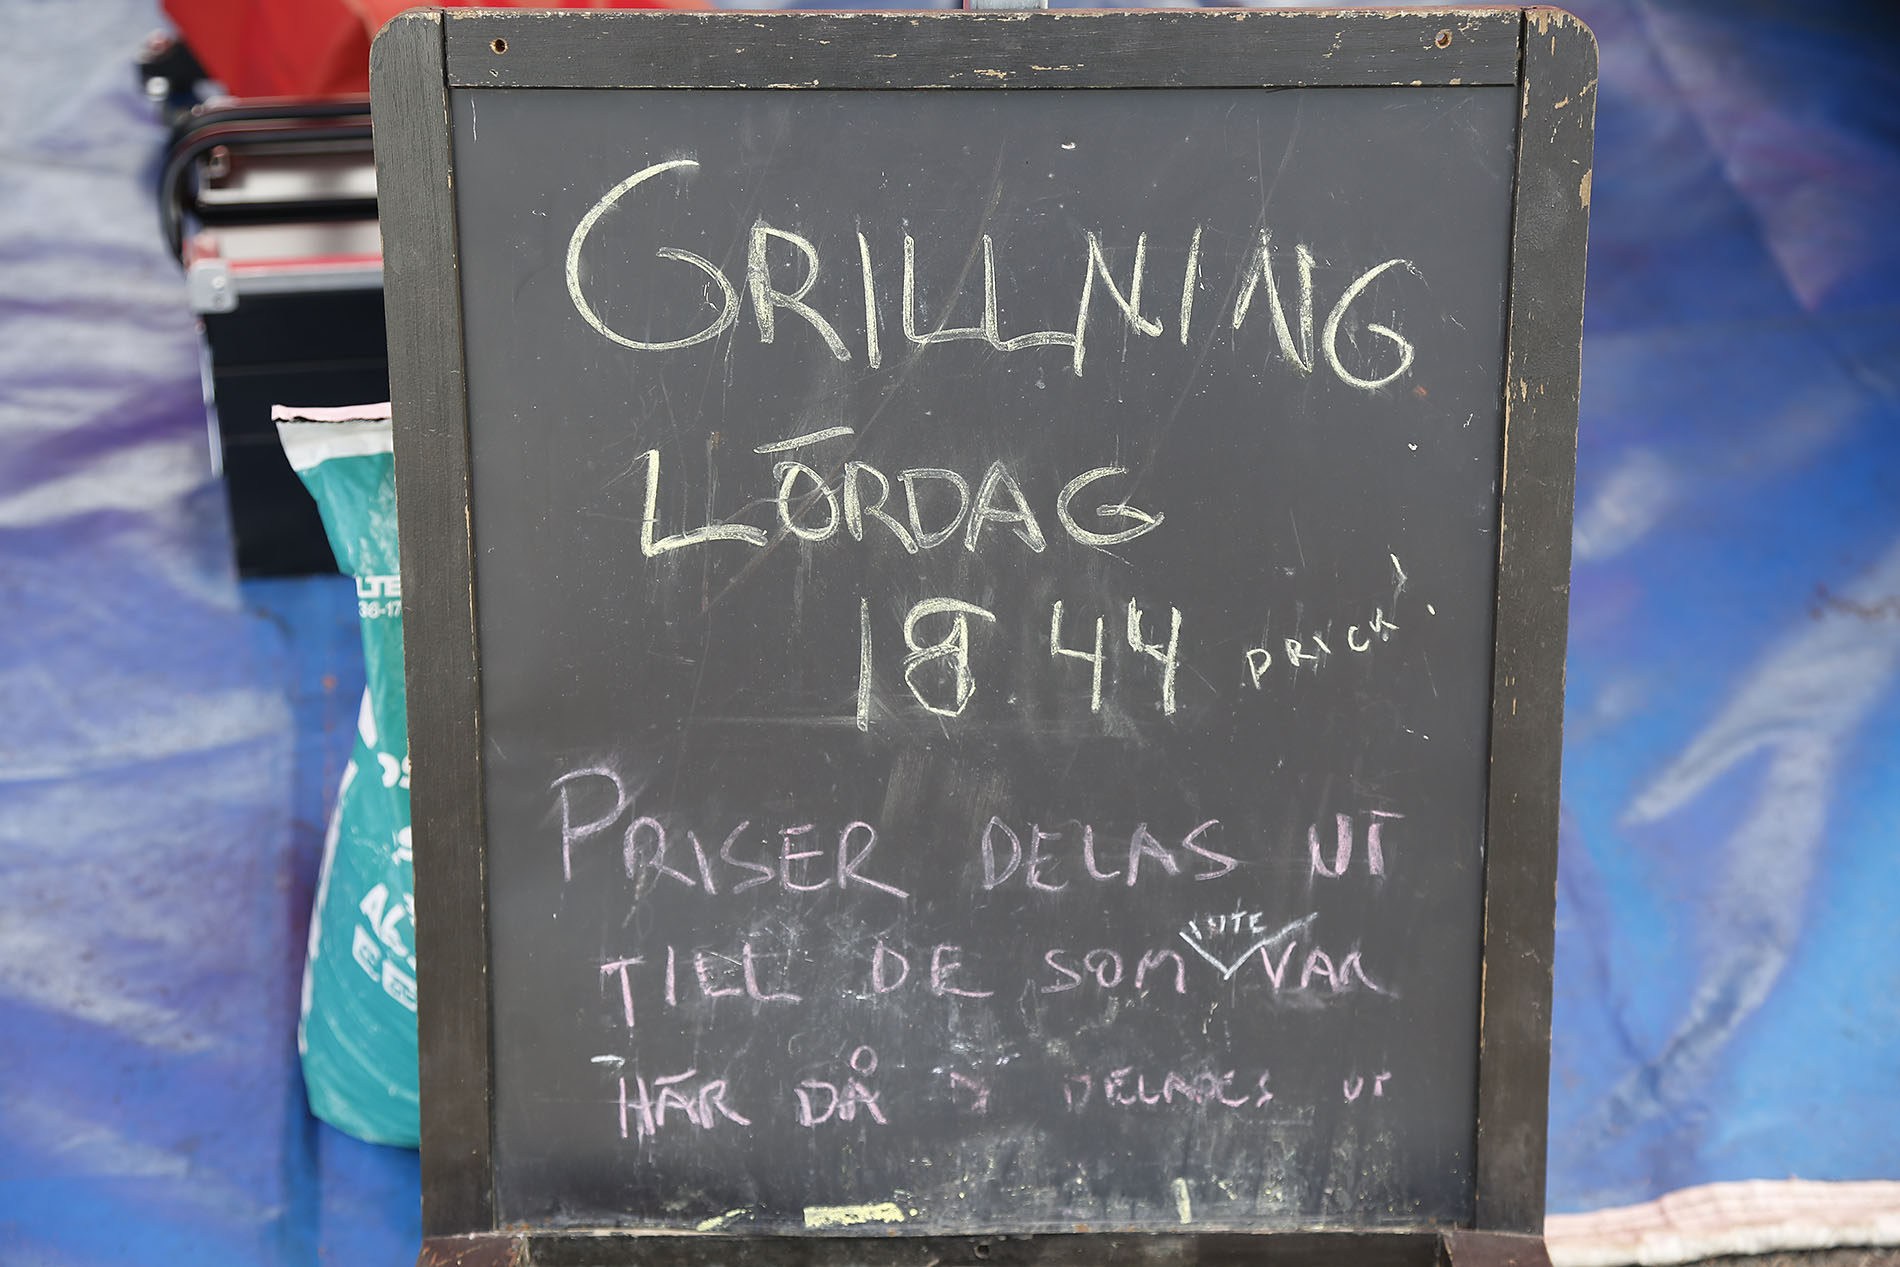 GRILLNING
LÖRDAG
18 44 PRICK!
PRISER DELAS UT
TILL DE SOM INTE VAR
HÄR DÅ D DELADES UT
LTE
36-17